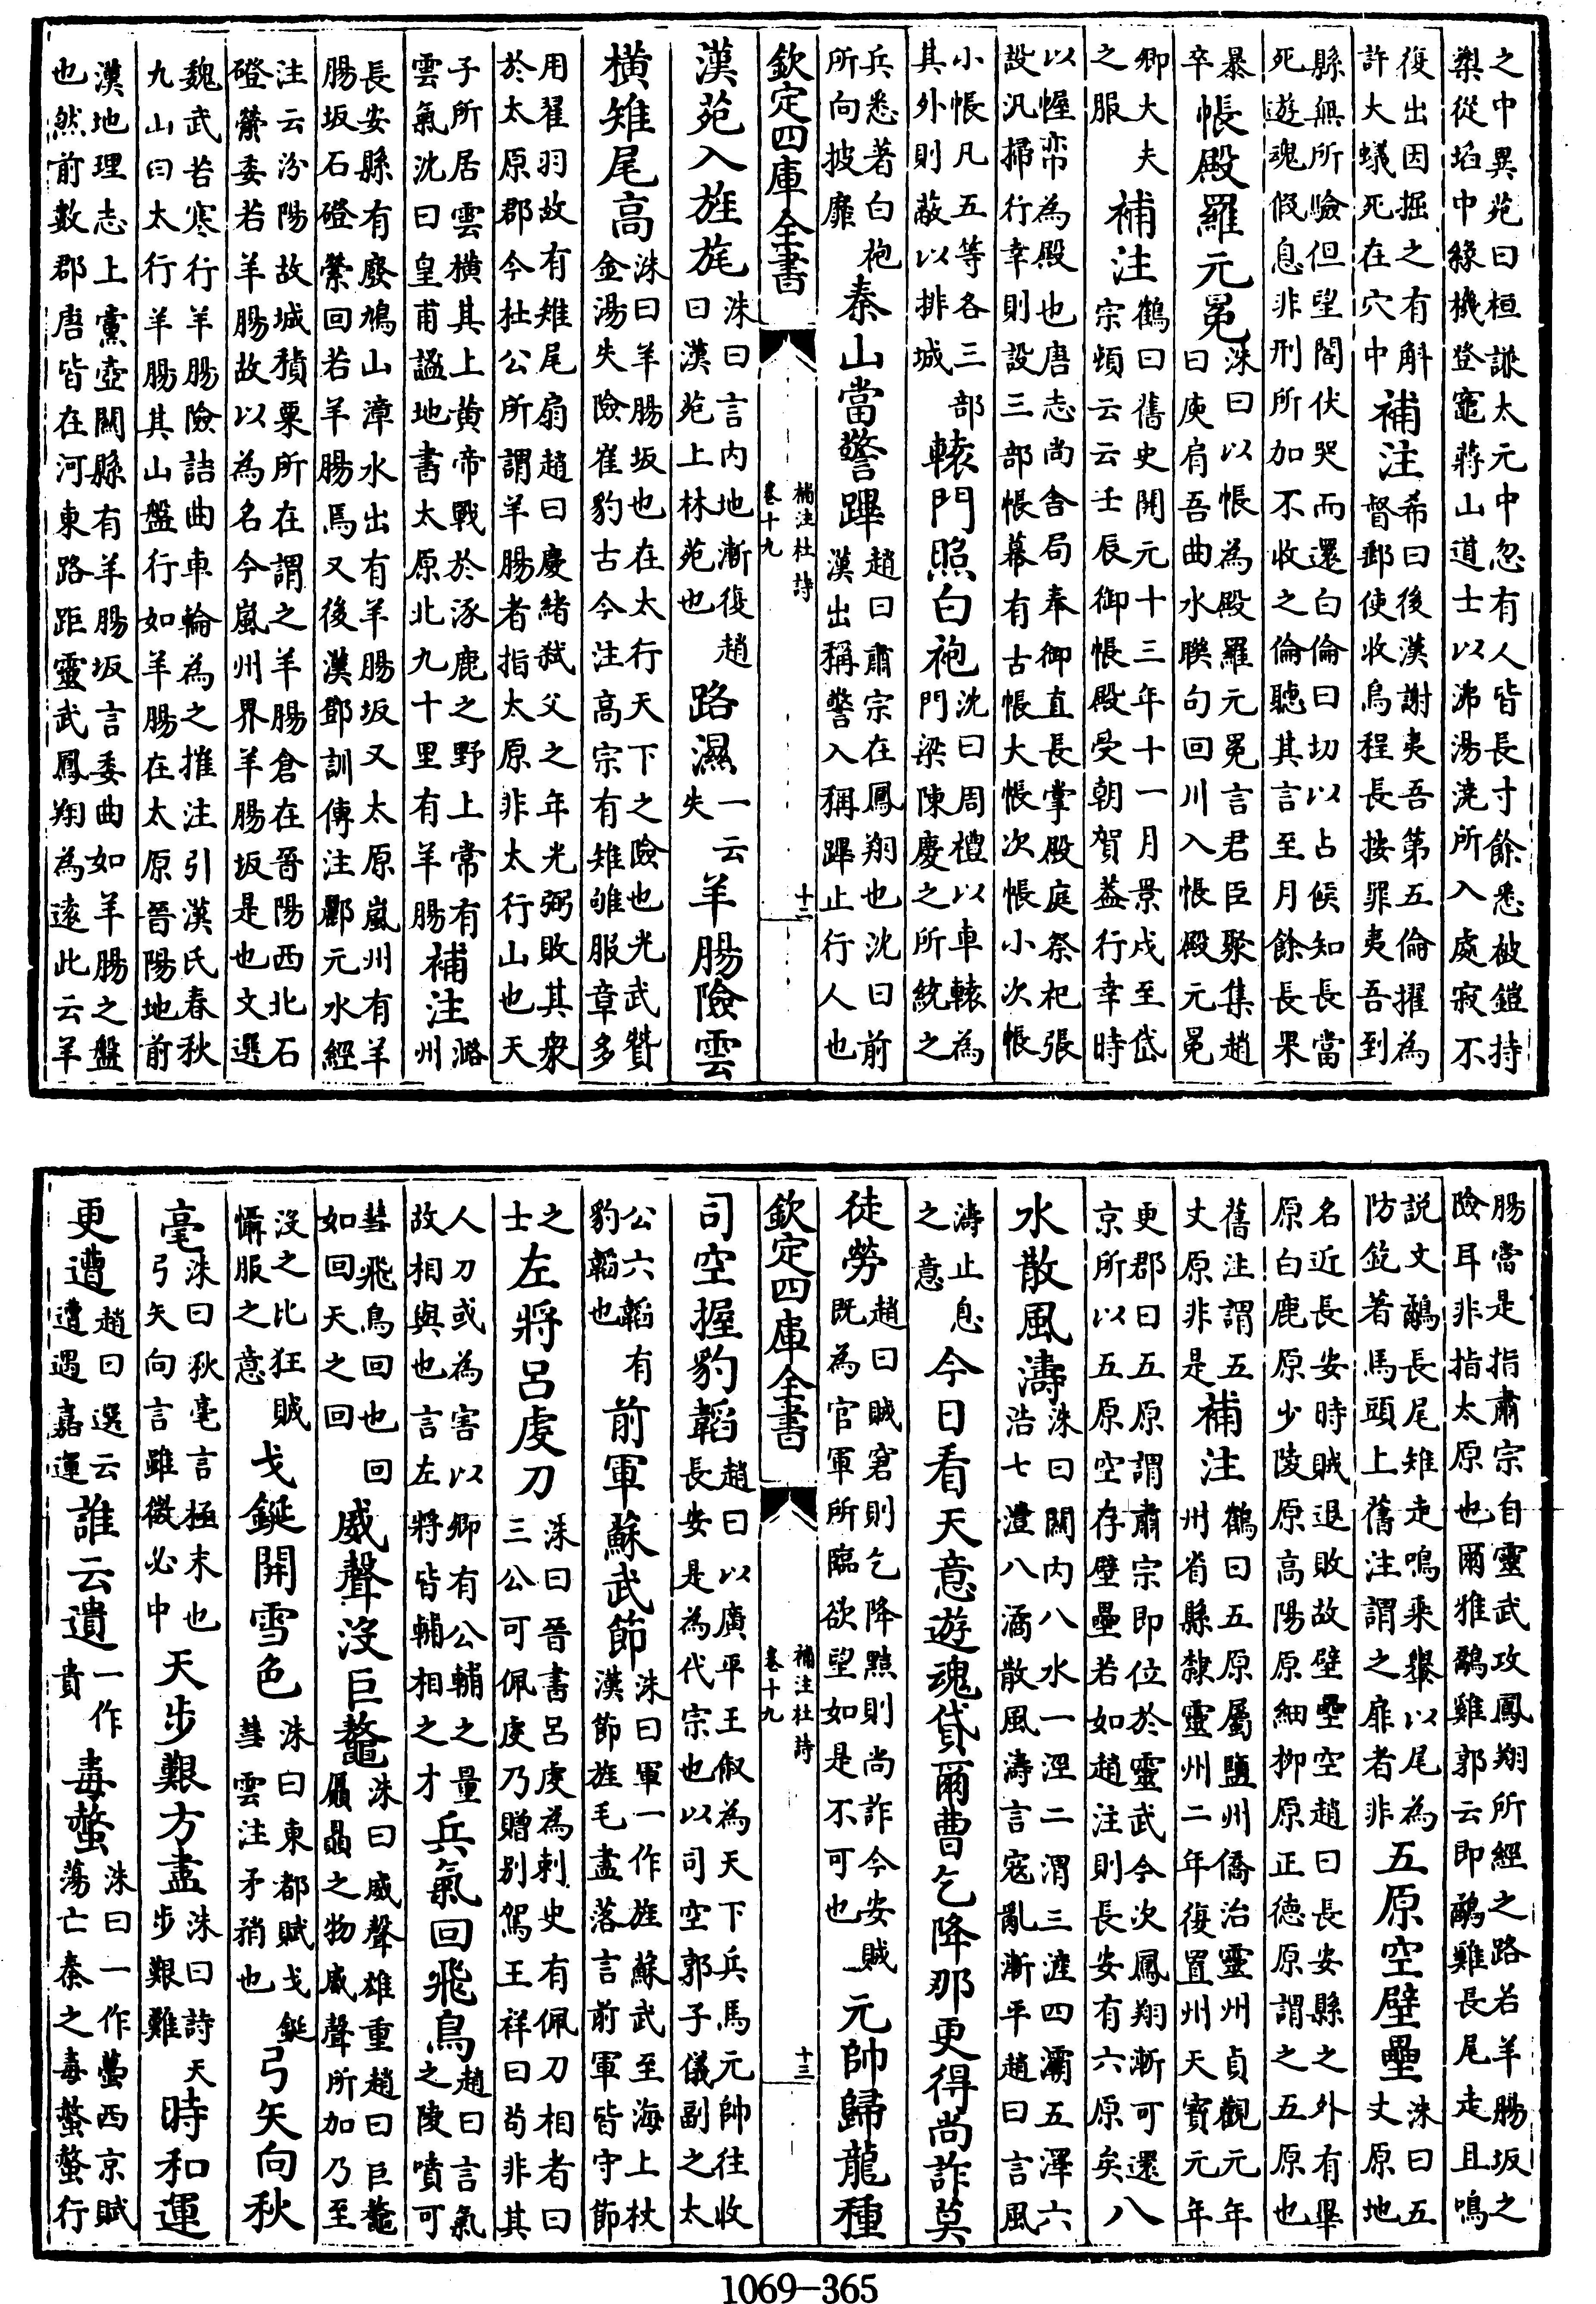 之中異苑曰桓謙太元中忽有人皆長寸餘悉被鎧持
槊從埳中緣機登竈蔣山道士以沸湯澆所入處寂不
復出因掘之有斛
許大蟻死在穴中
補注
希曰後漢謝夷吾第五倫擢為
督郵使收烏程長按罪夷吾到
縣無所驗但望閣伏哭而還白倫曰切以占候知長當
死遊魂假息非刑所加不收之倫聽其言至月餘長果
暴
卒
帳殿羅元冕
洙曰以帳為殿羅元冕言君臣聚集趙
曰庾肩吾曲水聯句回川入帳殿元冕
卿大夫
之服
補注
鶴曰舊史開元十三年十一月景戌至岱
宗頓云云壬辰御帳殿受朝賀葢行幸時
以幄帟為殿也唐志尚舍局奉御直長掌殿庭祭祀張
設汎掃行幸則設三部帳幕有古帳大帳次帳小次帳
小帳凡五等各三部
其外則蔽以排城
轅門照白袍
沈曰周禮以車轅為
門梁陳慶之所統之
兵悉著白袍
所向披靡
秦山當警蹕
趙曰肅宗在鳳翔也沈曰前
漢出稱警入稱蹕止行人也
欽定四庫全書
補注杜詩
卷十九
十二
漢苑入旌旄
洙曰言内地漸復趙
曰漢苑上林苑也
路濕
一云
失
羊腸險雲
橫雉尾高
洙曰羊腸坂也在太行天下之險也光武贊
金湯失險崔豹古今注高宗有雉雊服章多
用翟羽故有雉尾扇趙曰慶緒弑父之年光弼敗其衆
於太原郡今杜公所謂羊腸者指太原非太行山也天
子所居雲橫其上黄帝戰於涿鹿之野上常有
雲氣沈曰皇甫謐地書太原北九十里有羊腸
補注
潞
州
長安縣有廢鳩山漳水出有羊腸坂又太原嵐州有羊
腸坂石磴縈回若羊腸焉又後漢鄧訓傳注酈元水經
注云汾陽故城積粟所在謂之羊腸倉在晉陽西北石
磴縈委若羊腸故以為名今嵐州界羊腸坂是也文選
魏武苦寒行羊腸險詰曲車輪為之摧注引漢氏春秋
九山曰太行羊腸其山盤行如羊腸在太原晉陽地前
漢地理志上黨壺關縣有羊腸坂言委曲如羊腸之盤
也然前數郡唐皆在河東路距靈武鳳翔為遠此云羊
腸當是指肅宗自靈武攻鳳翔所經之路若羊腸坂之
險耳非指太原也爾雅鷸雞郭云即鷸雞長尾走且鳴
説文鷸長尾雉走鳴乘轝以尾為
防釳著馬頭上舊注謂之扉者非
五原空壁壘
洙曰五
丈原地
名近長安時賊退敗故壁壘空趙曰長安縣之外有畢
原白鹿原少陵原高陽原細柳原正德原謂之五原也
舊注謂五
丈原非是
補注
鶴曰五原屬鹽州僑治靈州貞觀元年
州省縣隸靈州二年復置州天寶元年
更郡曰五原謂肅宗即位於靈武今次鳳翔漸可還
京所以五原空存壁壘若如趙注則長安有六原矣
八
水散風濤
洙曰關内八水一涇二渭三滻四灞五澤六
浩七澧八潏散風濤言寇亂漸平趙曰言風
濤止息
之意
今日看天意遊魂貸爾曹乞降那更得尚詐莫
徒勞
趙曰賊窘則乞降黠則尚詐今安賊
既為官軍所臨欲望如是不可也
元帥歸龍種
欽定四庫全書
補注杜詩
卷十九
十三
司空握豹韜
趙曰以廣平王俶為天下兵馬元帥往收
長安是為代宗也以司空郭子儀副之太
公六韜有
豹韜也
前軍蘇武節
洙曰軍一作旌蘇武至海上杖
漢節旌毛盡落言前軍皆守節
之
士
左將呂䖍刀
洙曰晉書呂䖍為刺史有佩刀相者曰
三公可佩䖍乃贈别駕王祥曰苟非其
人刀或為害以卿有公輔之量
故相與也言左將皆輔相之才
兵氣回飛鳥
趙曰言氣
之陵噴可
彗飛鳥回也回
如回天之回
威聲沒巨鼇
洙曰威聲雄重趙曰巨鼇
屭贔之物威聲所加乃至
沒之比狂賊
懾服之意
戈鋋開雪色
洙曰東都賦戈鋋
彗雲注矛矟也
弓矢向秋
毫
洙曰秋毫言極末也
弓矢向言雖微必中
天步艱方盡
洙曰詩天
步艱難
時和運
更遭
趙曰選云
遭遇嘉運
誰云遺
一作
責
毒螫
洙曰一作螢西京賦
蕩亡秦之毒螫螫行
1069-365